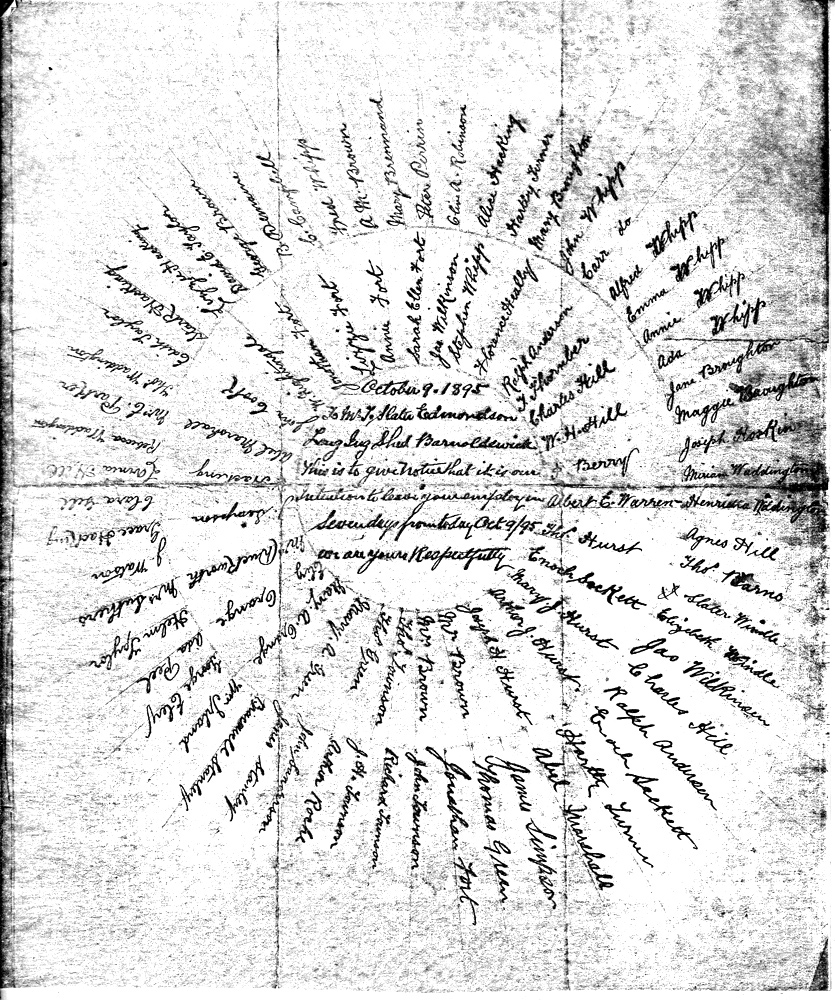 October 9. 1895
To Mr. T. Slater Edmondson
Long Ing Shed Barnoldswick
This is to give Notice that it is our
intention to leave your employ in
Seven days from today Oct 9/95
we are yours Respectfully
Jonathan Fort
Lizzie Fort
Annie Fort
Sarah Ellen Fort
Jas Wilkinson
Stephen Whipp
Florence Heally
Ralph Anderson
T. Thornber
Charles Hill
W. H. Hill
Berry
Albert E. Warren
Thos. Hurst
Enoch Sockett
Mary J. Hurst
Arthur J. Hurst
Joseph H. Hurst
Mr Brown
Mrs Brown
Thos. Lawson
Thos Green
Mary. A Green
Mary. A. Grange
Grange
Simpson
Hacking
Abel Marshall
John Cook
Nightingale
B Bonnin
Fred Whipp
A. M. Brown
Mary Brennand
Peter Perrin
Eliza A. Robinson
Alice Hacking
Hartley Turner
Mary Broughton
John Whipp
Carr do
Alfred Whipp
Emma Whipp
Annie Whipp
Ada Whipp
Jane Broughton
Maggie Broughton
Joseph Hoskin
Miriam Waddington
Henrietta Widdington
Agnes Hill
Thos. Barns
Slater Windle
Elizabeth Windle
Jas Wilkinson
Charles Hill
Ralph Anderson
Enoch Sockett
Hartley Turner
Abel Marshall
James Simpson
Thomas Green
Jonathan Fort
John Lawson
Richard Lawson
J. H. Lawson
Arthur Roche
John Sanderson
James Stanley
Bracewell Stanley
Wm Ireland
George Eley
Ada Peel
Helen Taylor
Mrs Suthers
J. Watson
Grace Hacking
Clara Gill
Emma Hill
Rebecca Waddington
Thos. Waddington
Wm E. Parker
Edith Taylor
Mark Hacking
Lizzie Hacking
David Taylor
George Brown